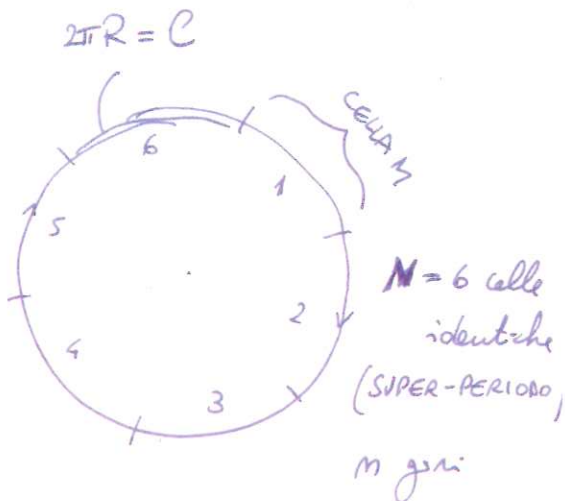 2πR = C
CELLA M
6
1
5
N = 6 celle
2
identiche
4
(SUPER-PERIODO,
3
n giri